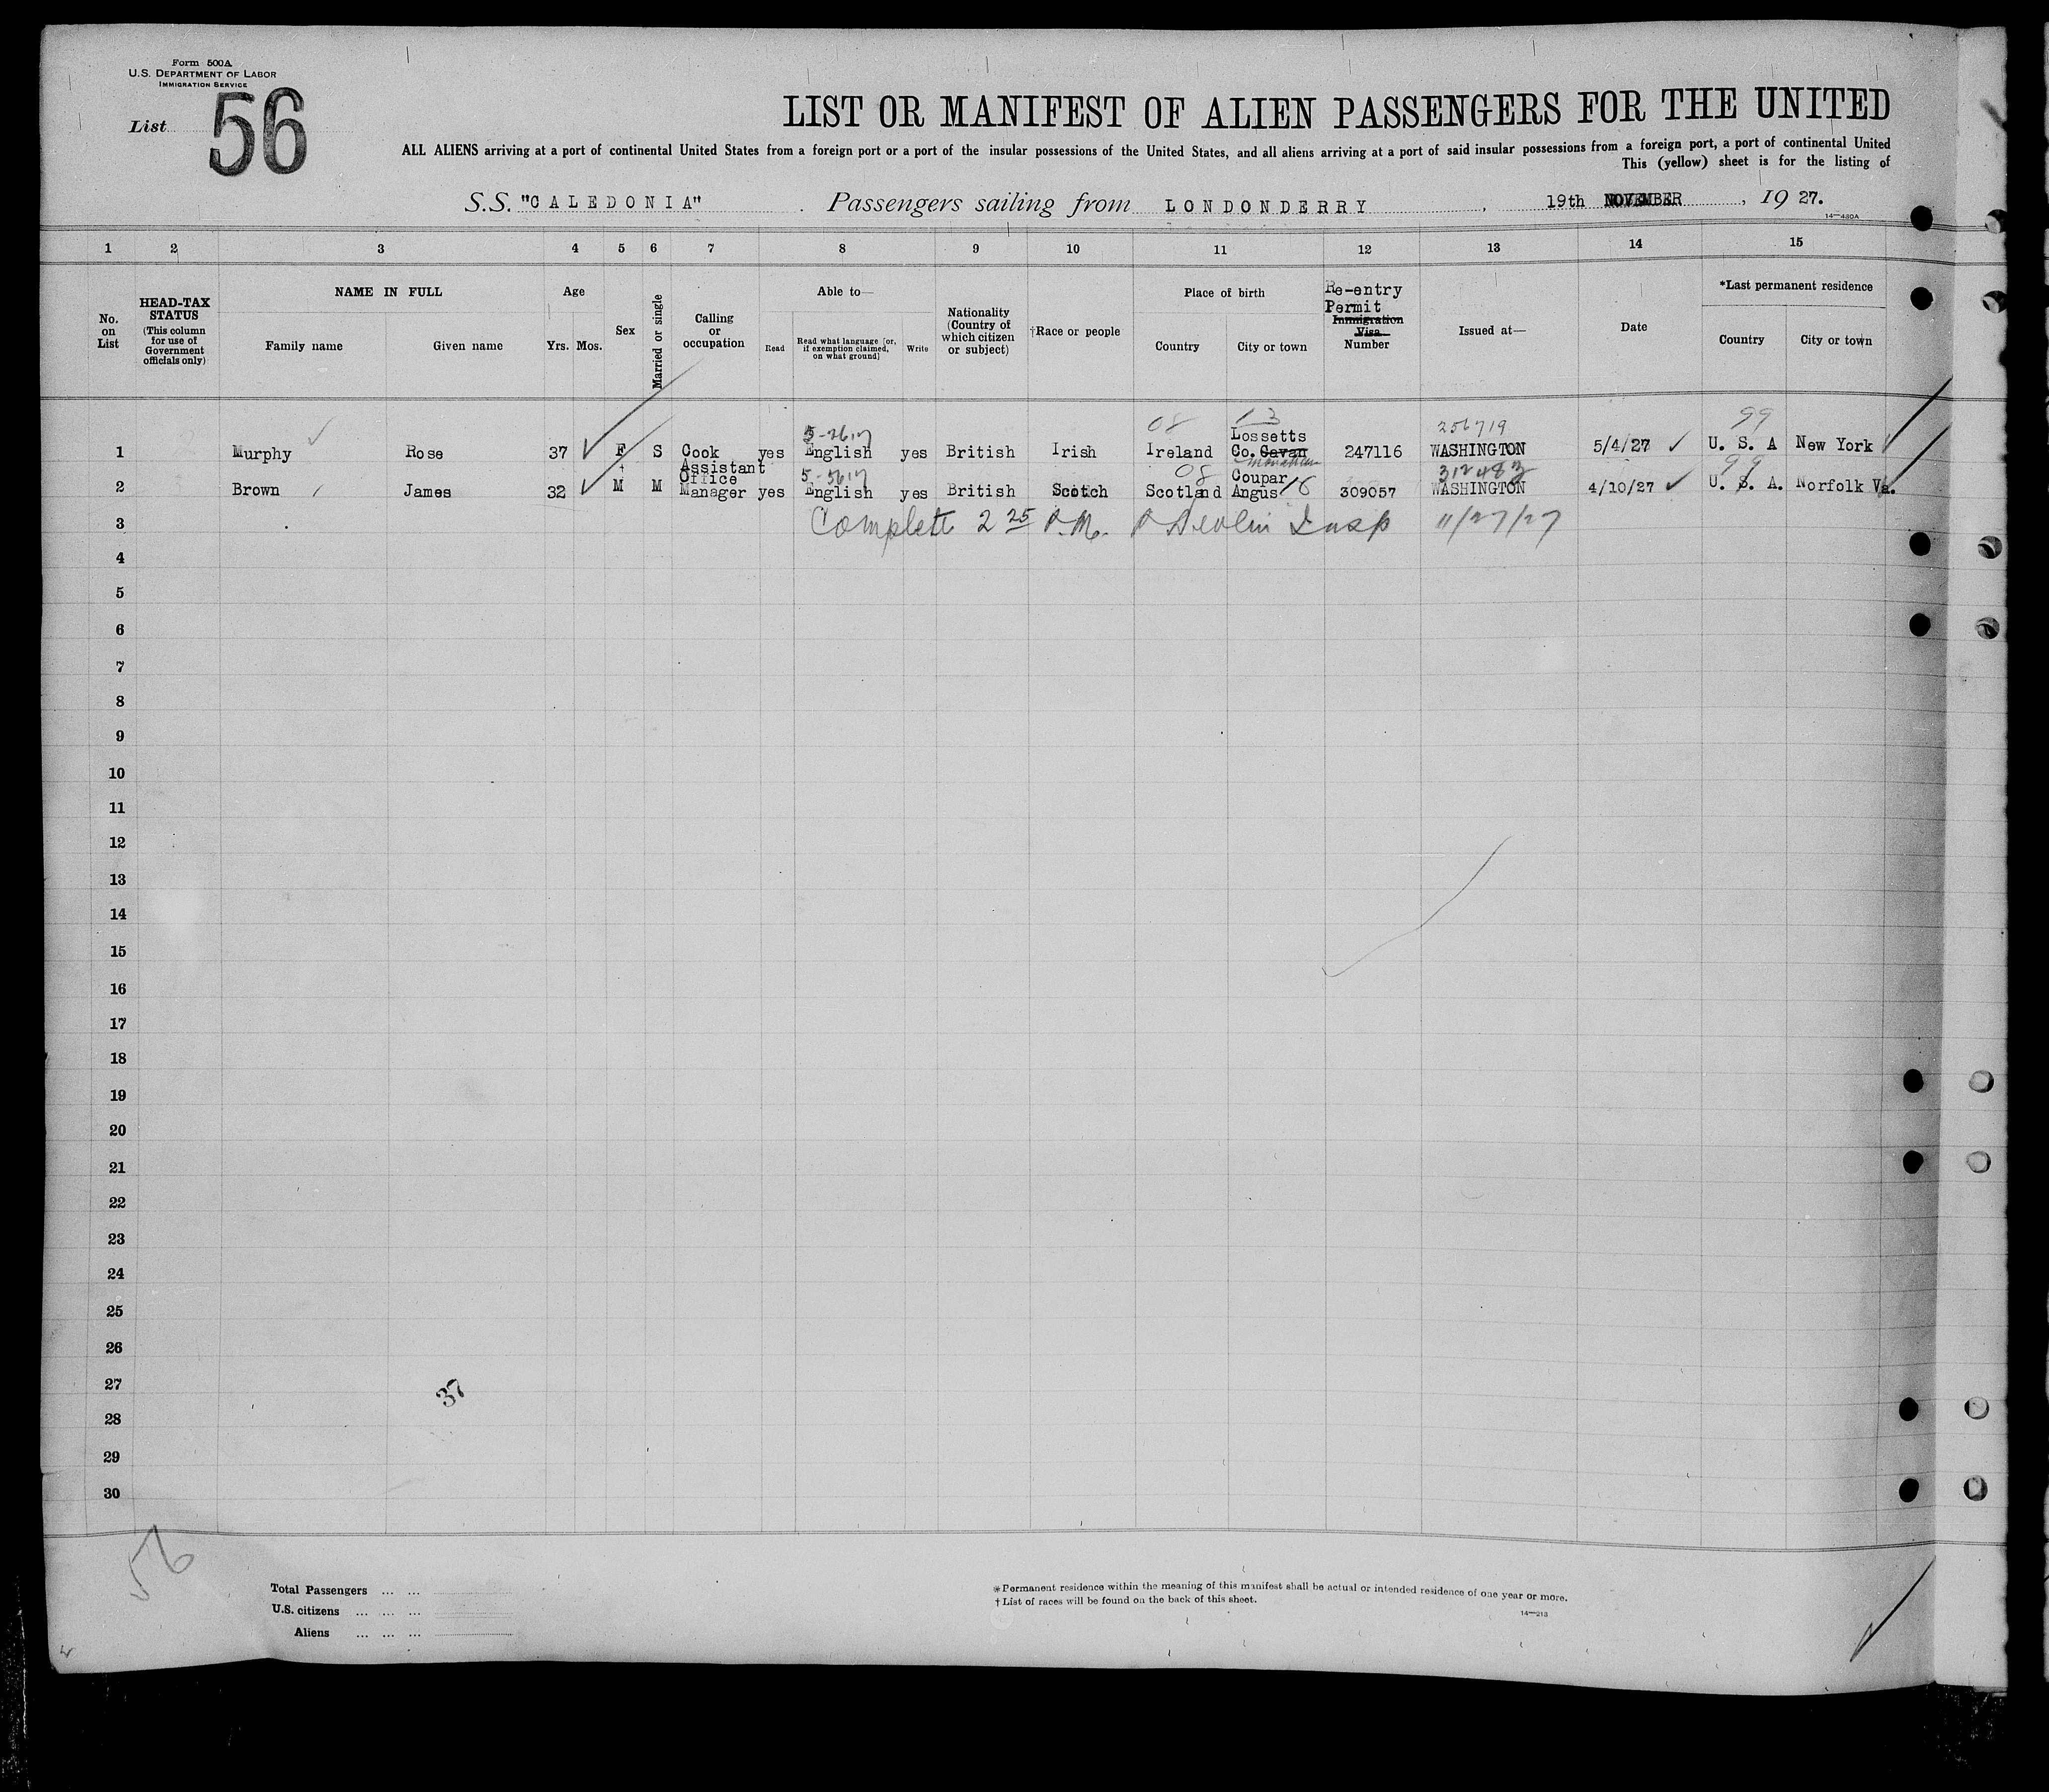 Form 500A
U.S. DEPARTMENT OF LABOR
IMMIGRATION SERVICE
List 56
LIST OR MANIFEST OF ALIEN PASSENGERS FOR THE UNITED
ALL ALIENS arriving at a port of continental United States from a foreign port or a port of the insular possessions of the United States, and all aliens arriving at a port of said insular possessions from a foreign port, a port of continental United
This (yellow) sheet is for the listing of
S.S. "CALEDONIA" . Passengers sailing from LONDONDERRY , 19th NOVEMBER , 19 27.
14—480A
1 2 3 4 5 6 7 8 9 10 11 12 13 14 15
No. on List
HEAD-TAX STATUS
(This column for use of Government officials only)
NAME IN FULL
Family name Given name
Age
Yrs. Mos.
Sex
Married or single
Calling or occupation
Able to—
Read
Read what language [or, if exemption claimed, on what ground]
Write
Nationality (Country of which citizen or subject)
†Race or people
Place of birth
Country City or town
Re-entry Permit
Immigration Visa Number
Issued at—
Date
*Last permanent residence
Country City or town
08 13 256719 99
Lossetts
1 Murphy Rose 37 F S Cook yes English yes British Irish Ireland Co. Cavan 247116 WASHINGTON 5/4/27 U. S. A New York
Monaghan
Assistant Office 08 Coupar 312483 99
2 Brown James 32 M M Manager yes English yes British Scotch Scotland Angus 16 309057 WASHINGTON 4/10/27 U. S. A. Norfolk Va.
3 Complete 2 25 P.M. P Devlin Insp 11/27/27
4
5
6
7
8
9
10
11
12
13
14
15
16
17
18
19
20
21
22
23
24
25
26
27
37
28
29
30
56
Total Passengers ... ...
U.S. citizens ... ... ...
Aliens ... ... ...
*Permanent residence within the meaning of this manifest shall be actual or intended residence of one year or more.
†List of races will be found on the back of this sheet.
14—213